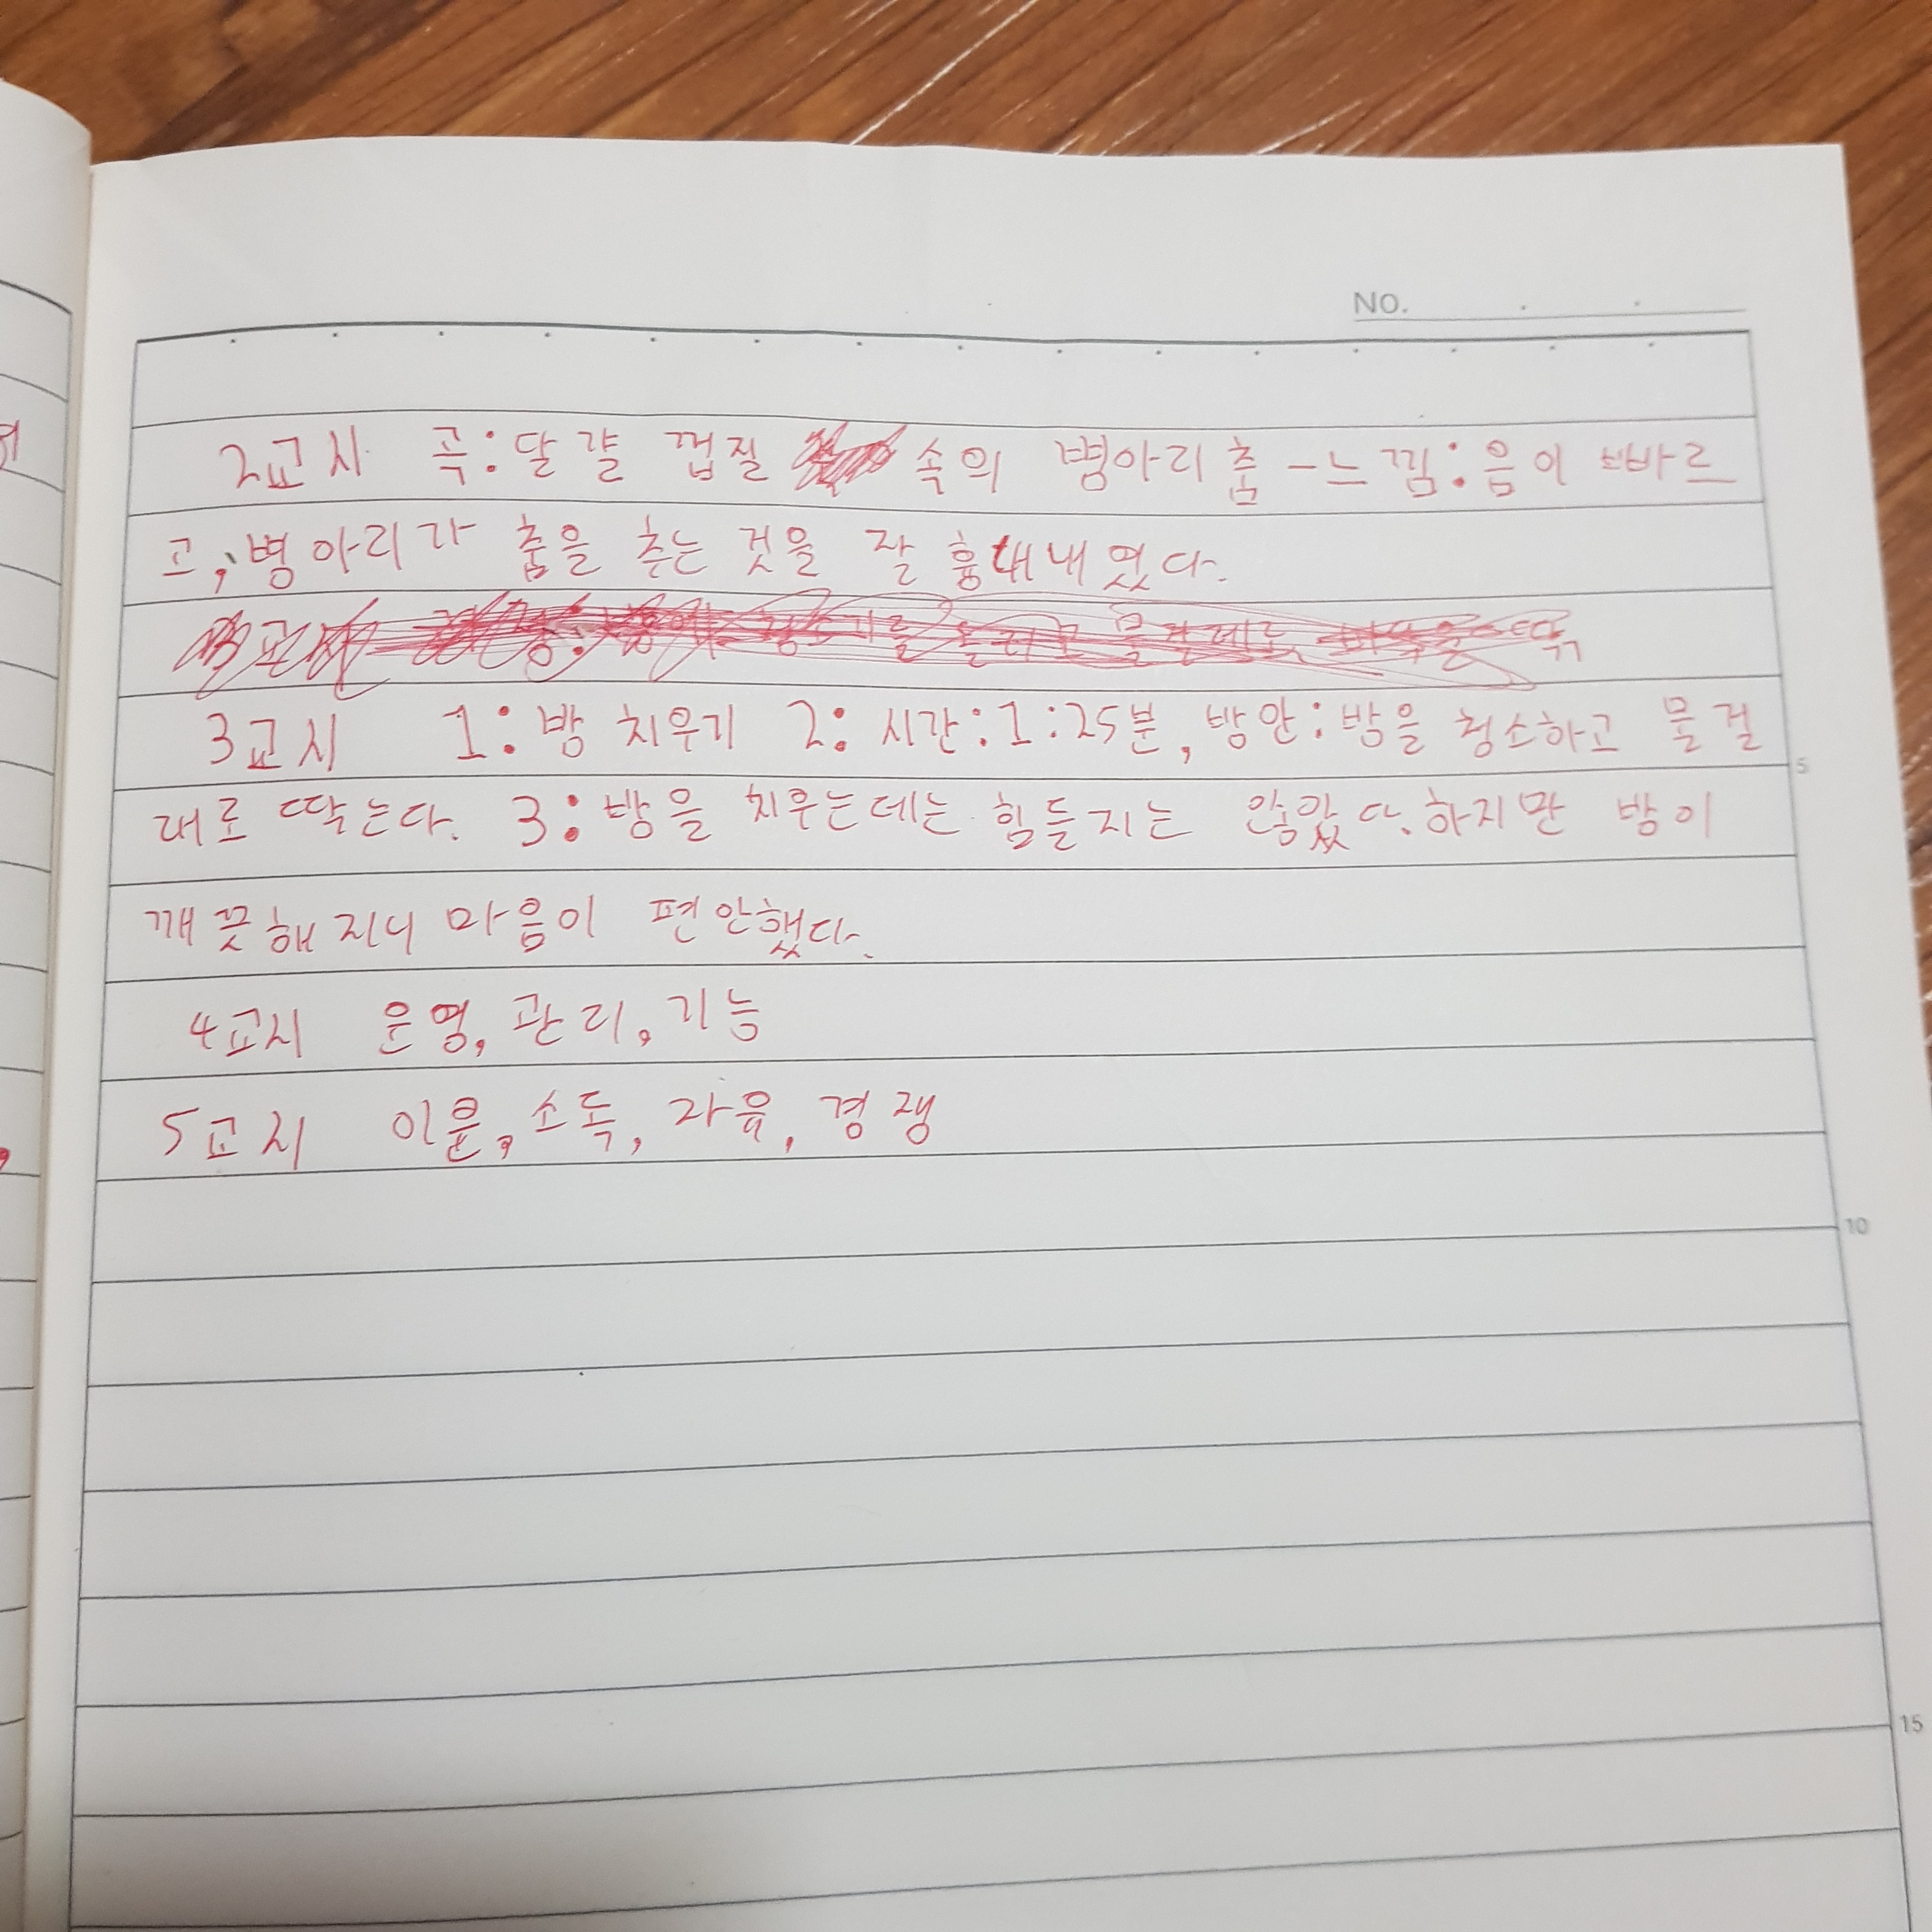 NO.
2교시 곡:달걀 껍질 속의 병아리춤 -느낌:음이 빠르
고, 병아리가 춤을 추는 것을 잘 흉내내었다.
3교시 1:방 치우기 2: 시간:1:25분, 방안:방을 청소하고 물걸
대로 딱는다. 3:방을 치우는데는 힘들지는 않았다. 하지만 방이
깨끗해지니 마음이 편안했다.
4교시 운영, 관리, 기능
5
5교시 이윤, 소득, 자유, 경쟁
10
15